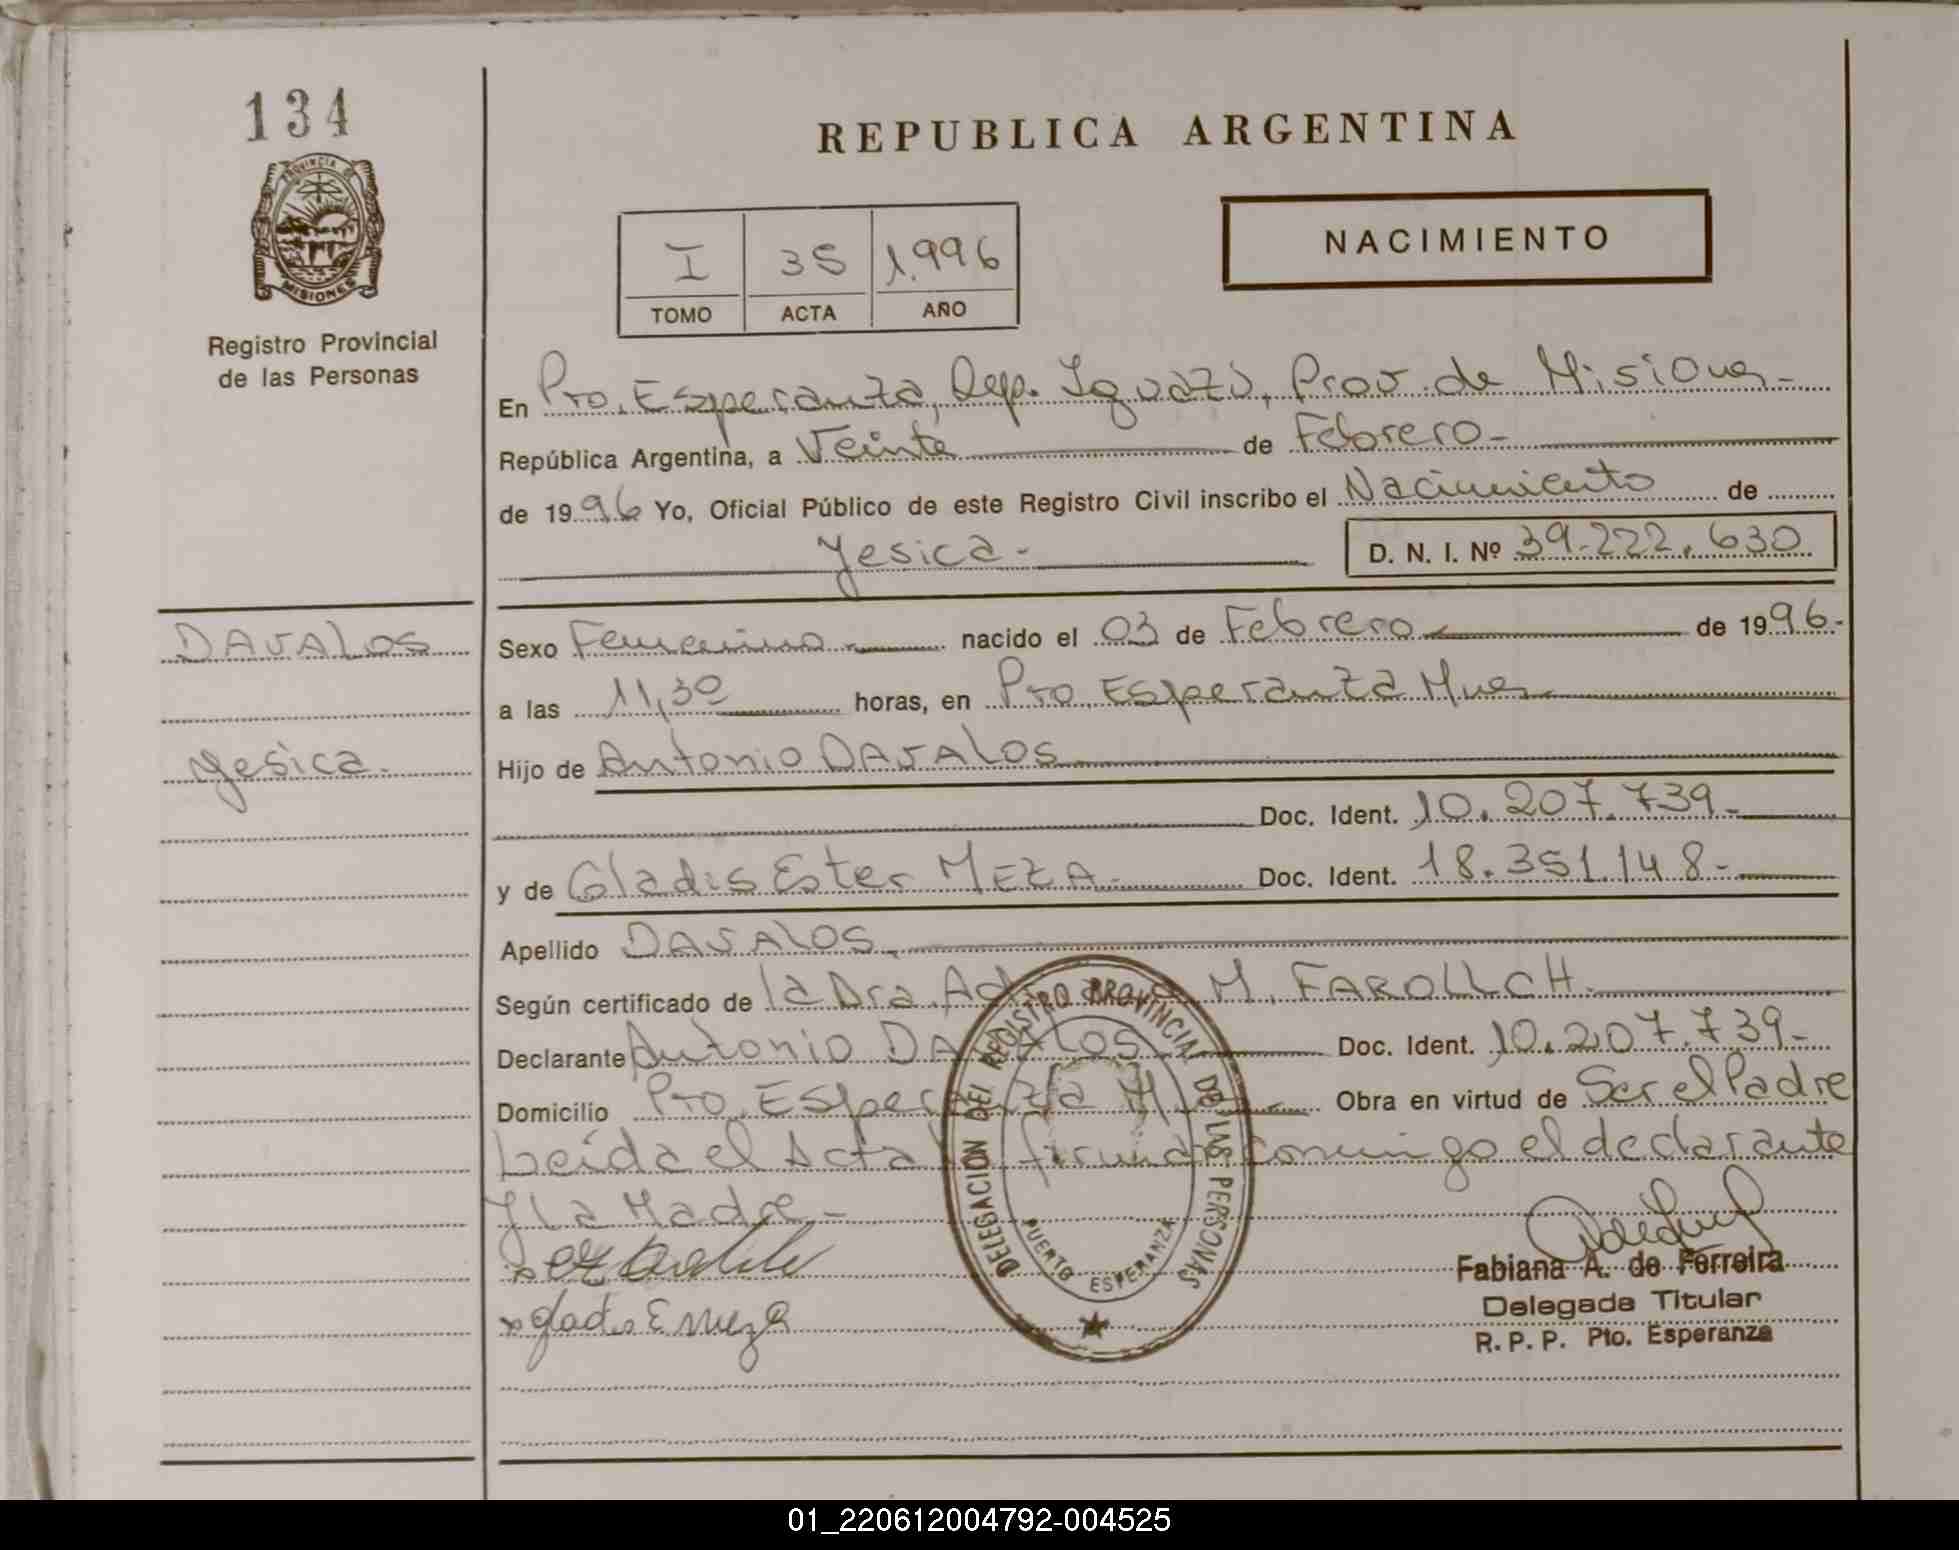 134
PROVINCIA DE
MISIONES
Registro Provincial
de las Personas
DAVALOS
Yesica.
REPUBLICA ARGENTINA
I 35 1.996
TOMO ACTA AÑO
NACIMIENTO
En Pto. Esperanza, Dep. Iguazú, Prov. de Misiones-
República Argentina, a Veinte de Febrero-
de 1996 Yo, Oficial Público de este Registro Civil inscribo el Nacimiento de
Yesica- D. N. I. Nº 39.222.630
Sexo Femenino nacido el 03 de Febrero de 1996.-
a las 11,30 horas, en Pto. Esperanza Mnes
Hijo de Antonio DAVALOS
Doc. Ident. 10.207.739-
y de Gladis Ester MEZA. Doc. Ident. 18.351.148-
Apellido DAVALOS.
Según certificado de la Dra. M. FAROLLCH.
Declarante Antonio DAVALOS Doc. Ident. 10.207.739-
Domicilio Pto. Esperanza Obra en virtud de Ser el Padre
Leída el Acta firman conmigo el declarante
y la Madre-
Gladis E Meza
DELEGACION DEL REGISTRO PROVINCIAL DE LAS PERSONAS
PUERTO ESPERANZA
Fabiana A. de Ferreira
Delegada Titular
R. P. P. Pto. Esperanza
01_220612004792-004525